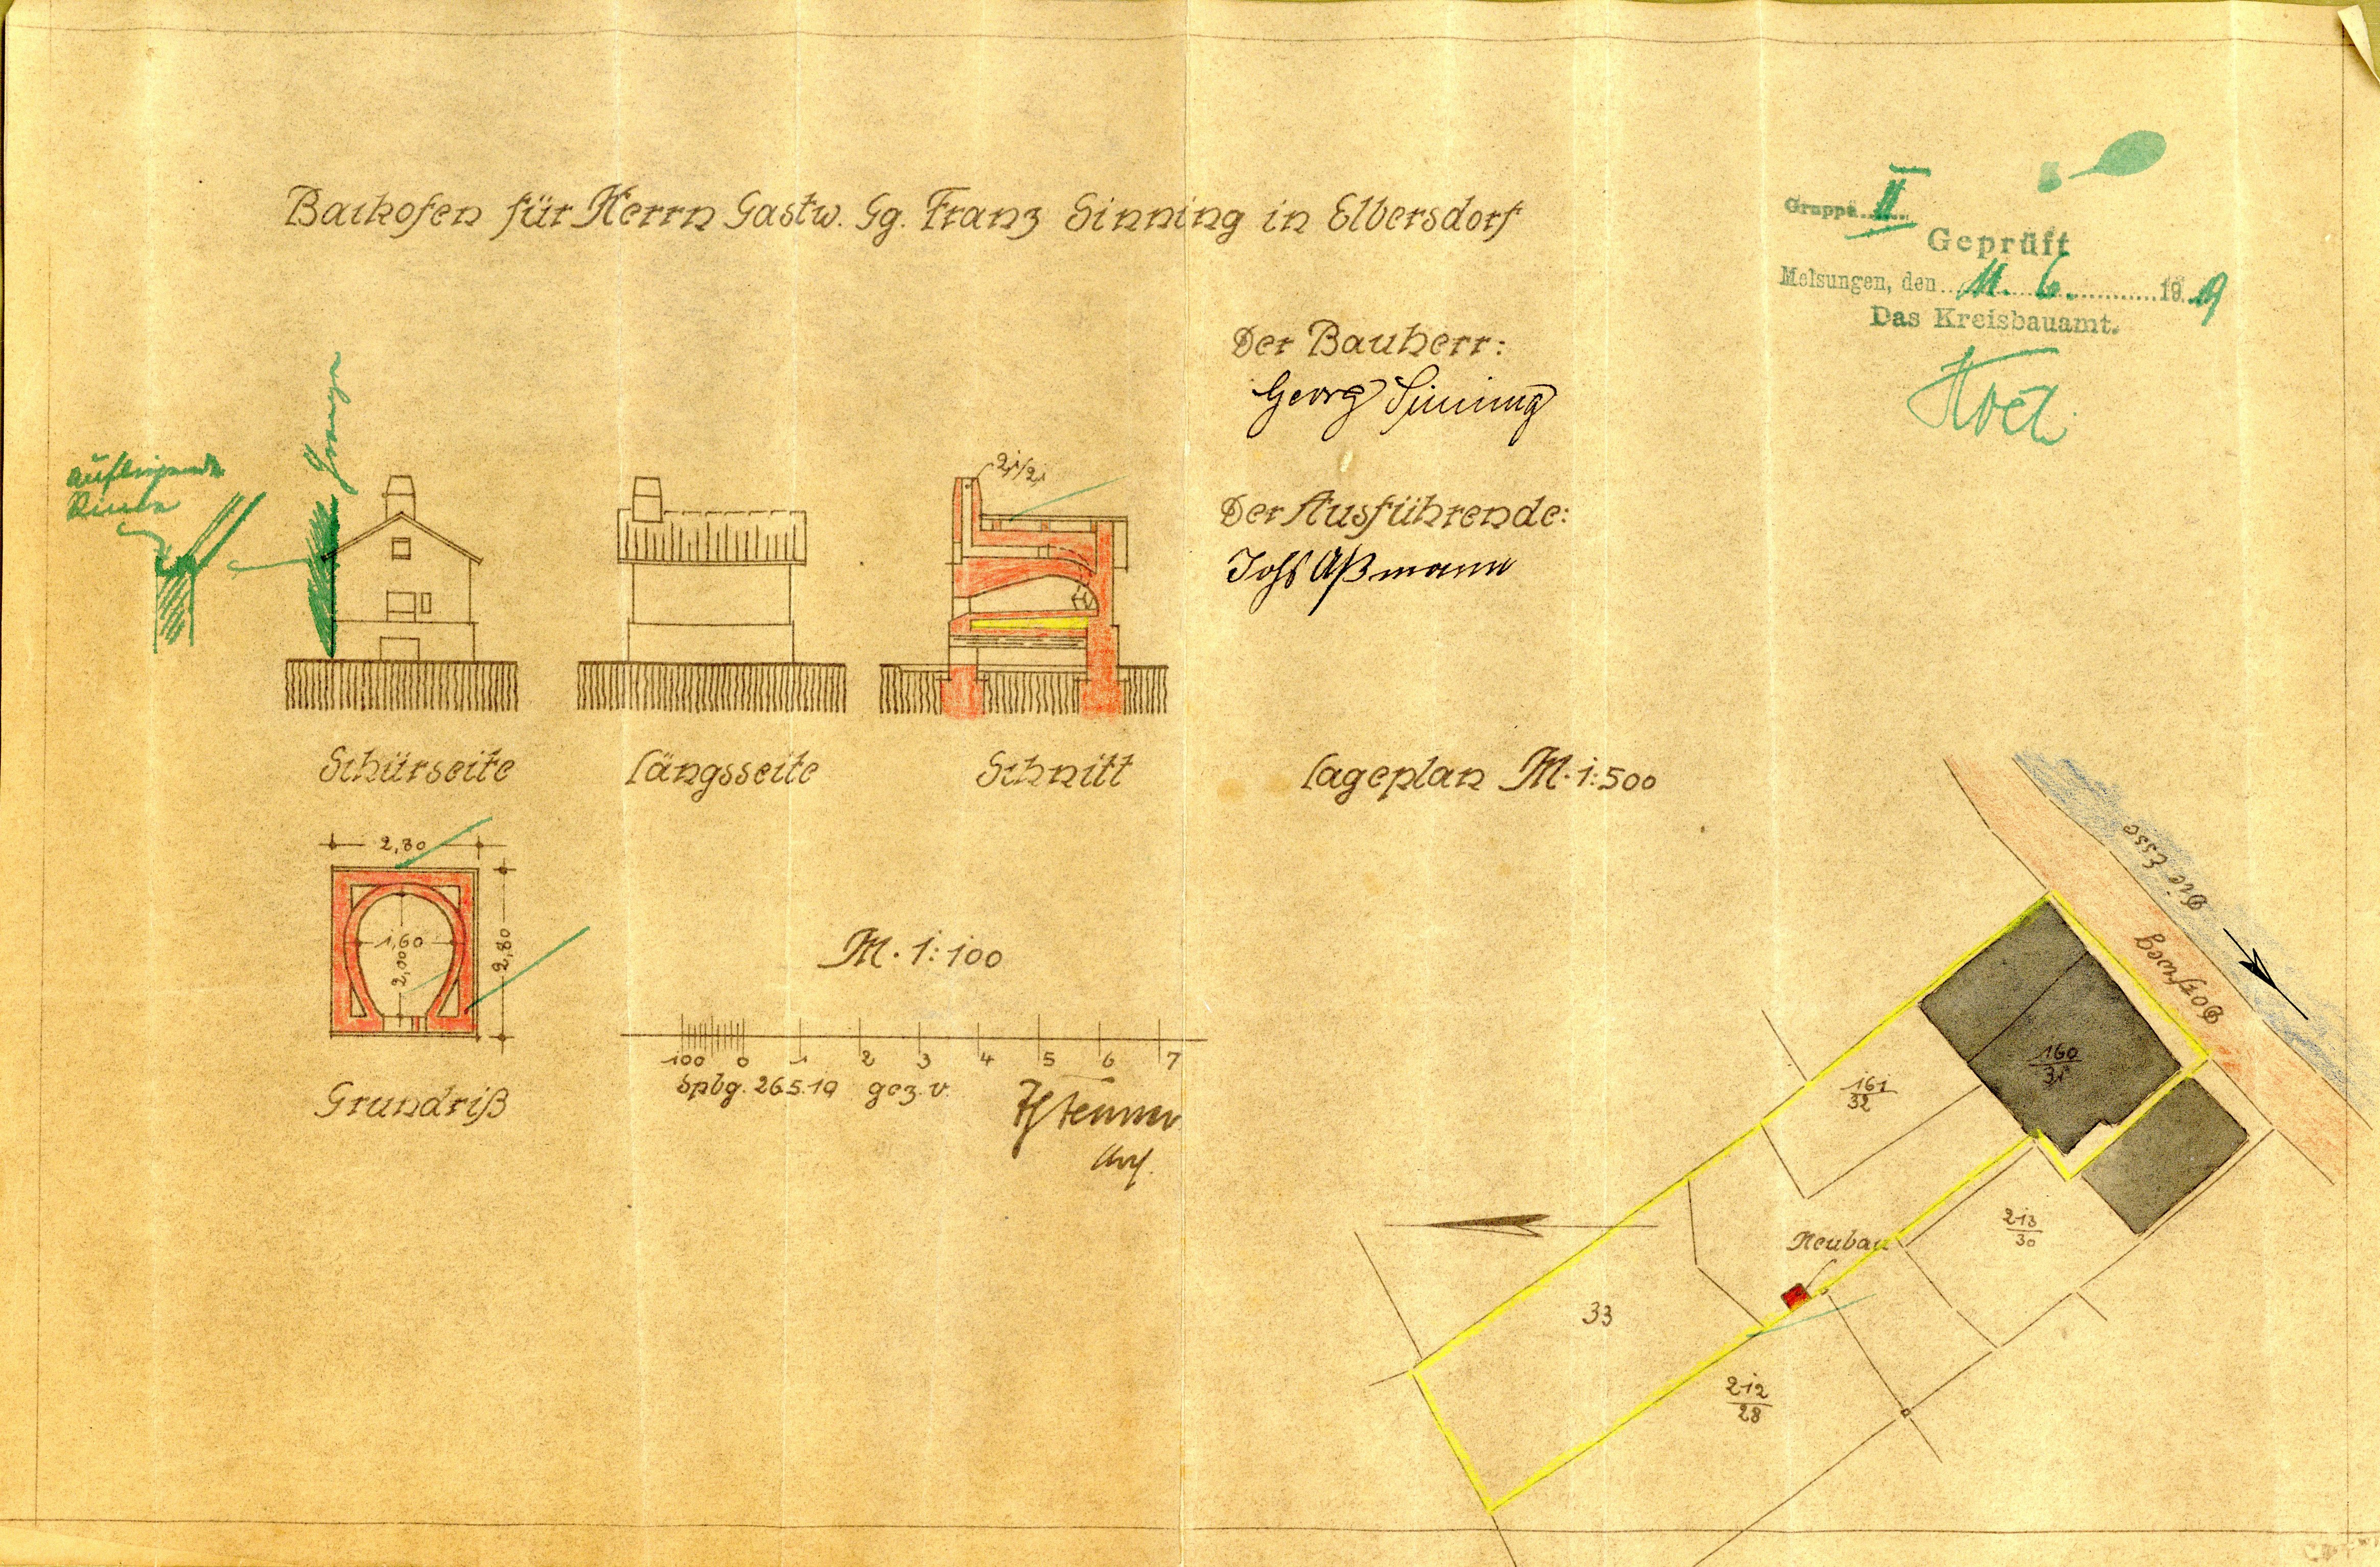 Backofen für Herrn Gastw. Gg. Franz Sinning in Elbersdorf
Gruppe II
Geprüft
Melsungen, den 11. 6. 19 19
Das Kreisbauamt.
Der Bauherr:
Georg Sinning
Der Ausführende:
Johs Aßmann
Grenze
aufliegende
Rinne
Schürseite
Längsseite
Schnitt
2,80
1,60
2,00
2,80
Grundriß
M. 1:100
100 0 1 2 3 4 5 6 7
Spbg. 26.5.19 gez. v.
Lageplan M. 1:500
Die Esse
Dorfweg
160
31
161
32
213
30
Neubau
33
212
28